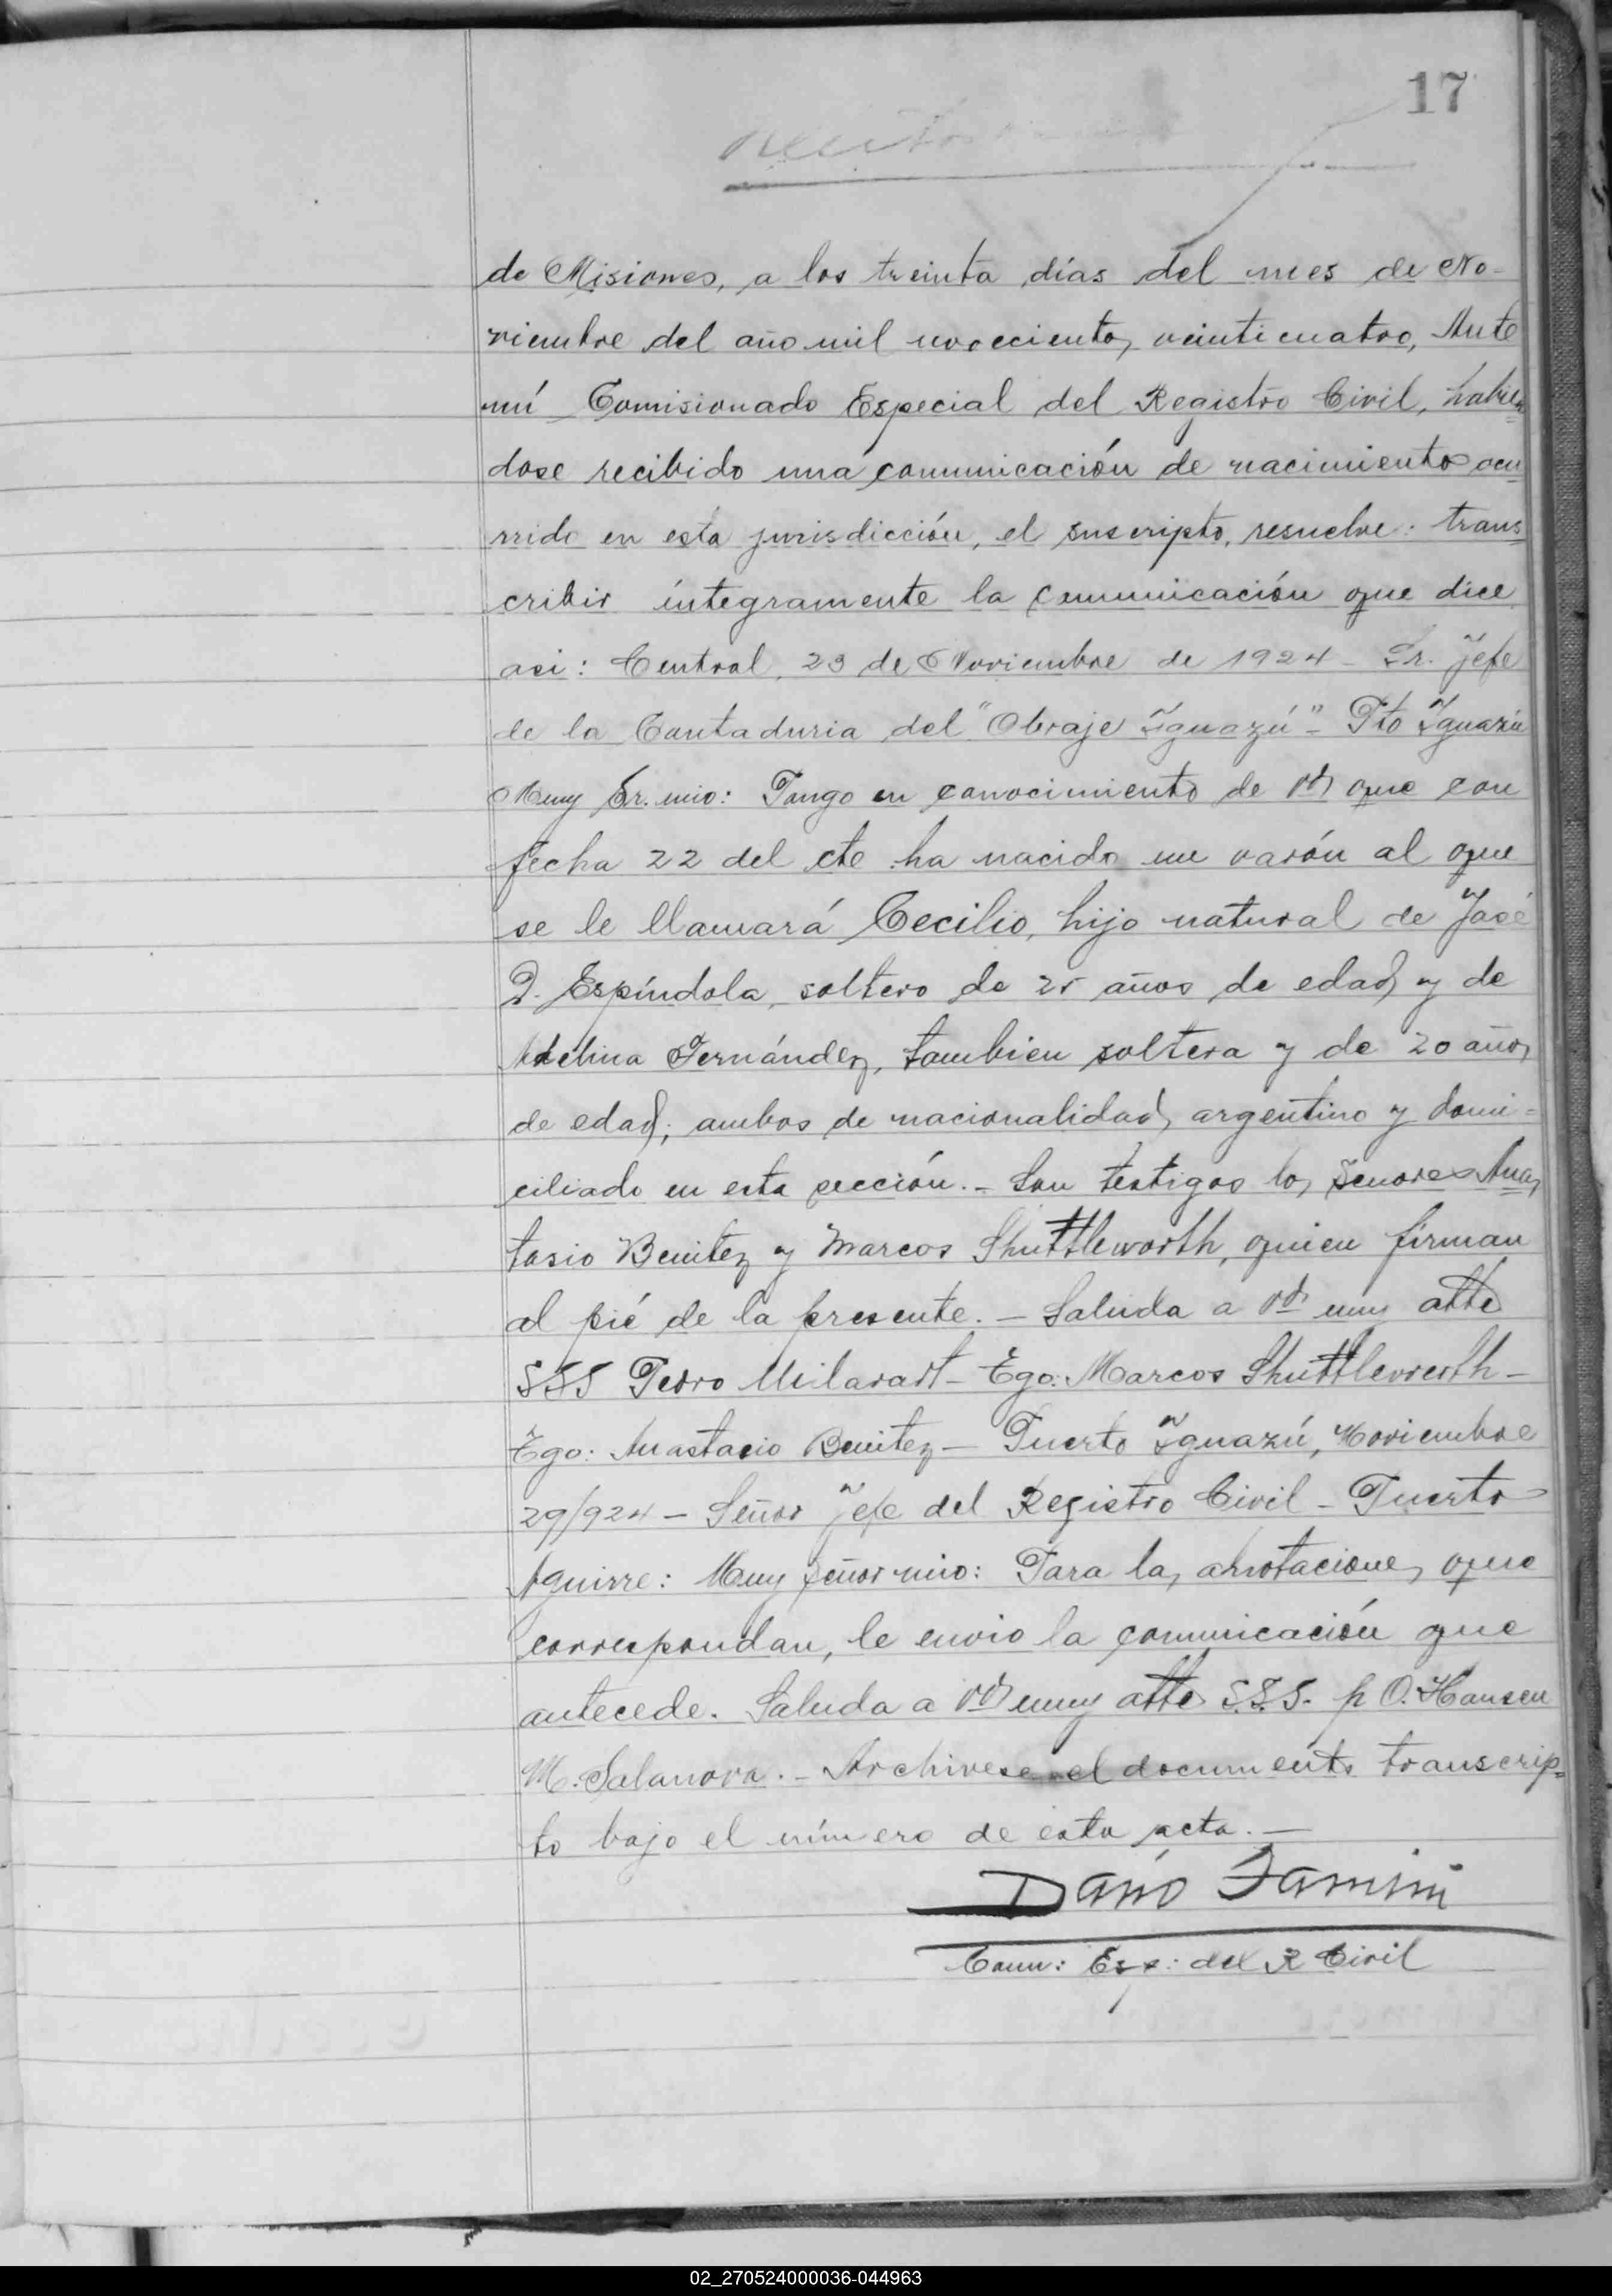 17
de Misiones, a los treinta días del mes de No-
viembre del año mil novecientos veinticuatro, Ante
mí Comisionado Especial del Registro Civil, habien
dose recibido una comunicación de nacimiento ocu
rrido en esta jurisdicción, el suscripto, resuelve: trans
cribir íntegramente la comunicación que dice
asi: Central, 23 de Noviembre de 1924 - Sr. Jefe
de la Contaduria del "Obraje Iguazú" - Pto Iguazú
Muy Sr. mio: Pongo en conocimiento de Vd que con
fecha 22 del cte ha nacido un varón al que
se le llamará Cecilio, hijo natural de José
D. Espíndola, soltero de 25 años de edad y de
Adelina Fernández, tambien soltera y de 20 años
de edad; ambos de nacionalidad argentino y domi=
ciliado en esta sección. - Son testigos los Señores Anas
tasio Benitez y Marcos Shuttleworth, quien firman
al pié de la presente. - Saluda a Vd muy atte
SSS Pedro - Tgo: Marcos Shuttleworth -
Tgo: Anastacio Benitez - Puerto Iguazú, Noviembre
29/924 - Señor Jefe del Registro Civil - Puerto
Aguirre: Muy Señor mio: Para las anotaciones que
correspondan, le envio la comunicación que
antecede. Saluda a Vd muy atte S.S.S. p O. Hansen
M. Salanova. - Archivese el documento transcrip=
to bajo el número de esta acta. -
Comi: Esp: del R Civil